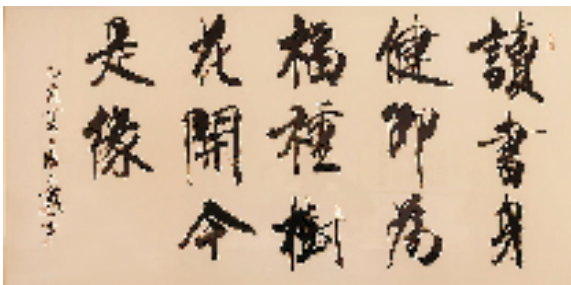 讀書身
健即為
福種樹
花開今
是緣